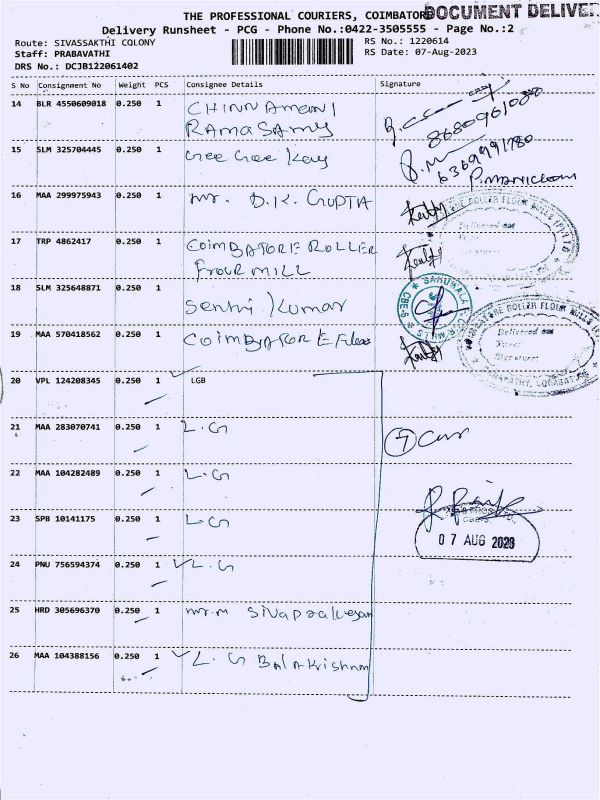 THE PROFESSIONAL COURIERS, COIMBATORE
DOCUMENT DELIVER
Delivery Runsheet - PCG - Phone No.:0422-3505555 - Page No.:2
Route: SIVASSAKTHI COLONY
RS No.: 1220614
Staff: PRABAVATHI
RS Date: 07-Aug-2023
DRS No.: DCJB122061402
S No Consignment No Weight PCS Consignee Details Signature
14 BLR 4550609018 0.250 1 CHINNAMANI
RAMASAMY
8680961088
15 SLM 325704445 0.250 1 Gee Gee Kay
6369991780
P. MANICKAM
16 MAA 299975943 0.250 1 Mr. D.K. GUPTA
17 TRP 4862417 0.250 1 COIMBATORE ROLLER
FLOUR MILL
18 SLM 325648871 0.250 1 Senthil Kumar
19 MAA 570418562 0.250 1 COIMBATORE
Delivered
20 VPL 124208345 0.250 1 LGB
21 MAA 283070741 0.250 1 L.G
7 Cvr
22 MAA 104282489 0.250 1 L.G
23 SPB 10141175 0.250 1 L.G
07 AUG 2023
24 PNU 756594374 0.250 1 L.G
25 HRD 305696370 0.250 1 Mr.M Sivaprakasam
26 MAA 104388156 0.250 1 L.G Balakrishnan